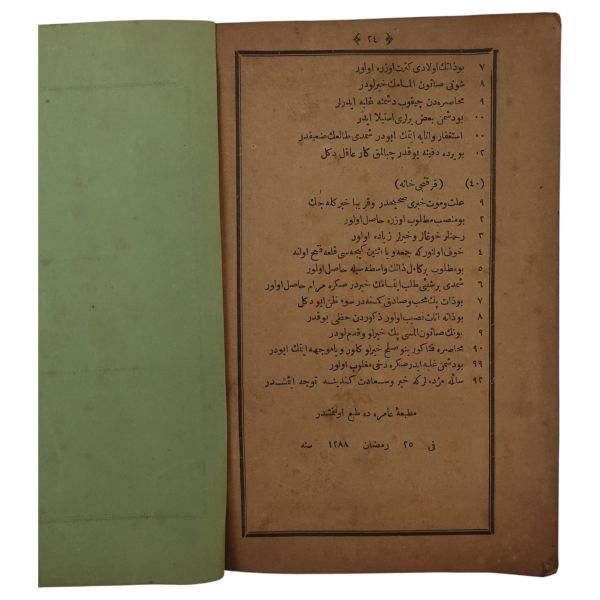 ﴿ ٢٤ ﴾
٧ بو ذاتك اولادى كثرت اوزره اولور
٨ شونى صاتون المامك خيرلودر
٩ محاصره دن چيقوب دشمنه غلبه ايدرلر
٠٠ بودشمن بعض يرلرى استيلا ايدر
٠٠ استغفار وانابه ايتمك ايودر شمدى طالعك ضعيفدر
٠٢ بويرده دفينه يوقدر چبالمق كار عاقل دكل
(٤٠) (قرقنجى خانه)
٩ علت وموت خبرى صحيحدر وقريبا خبر كله جك
٢ بو منصب مطلوب اوزره حاصل اولور
٣ زياده اولور
٤ خوف اولنور كه جمعه ويا اثنين كيجه سى قلعه فتح اولنه
٥ بو مطلوب بر كامل ذاتك واسطه سيله حاصل اولور
٦ شمدى بر شيئى طلب ايتمامك خيردر صكره مرام حاصل اولور
٧ بو ذات پك محب وصادق كمسنه در سوء ظن ايو دكل
٨ بو ذاته اناث نصيب اولور ذكوردن حظى يوقدر
٩ بونك صاتون المسى پك خيرلو وقدملودر
٩٠ محاصره صلح خيرلو كلور ويا موجهه ايتمك ايودر
٩٩ بو دشمن غلبه ايدر صكره دخى مغلوب اولور
٩٢ سائله مژده لر كه خير وسعادت كندينه توجه ايتمشدر
مطبعۀ عامره ده طبع اولنمشدر
فى ٢٥ رمضان ١٢٨٨ سنه